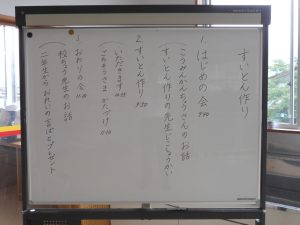 すいとん作り
1. はじめの会 9:40
こうみんかんちょうさんのお話
すいとん作りの先生しょうかい
2. すいとん作り 9:50
(いただきます 10:55
ごちそうさま かたづけ) 11:10
3. おわりの会 11:10
(校ちょう先生のお話
二年生からおれいの言ばとプレゼント)